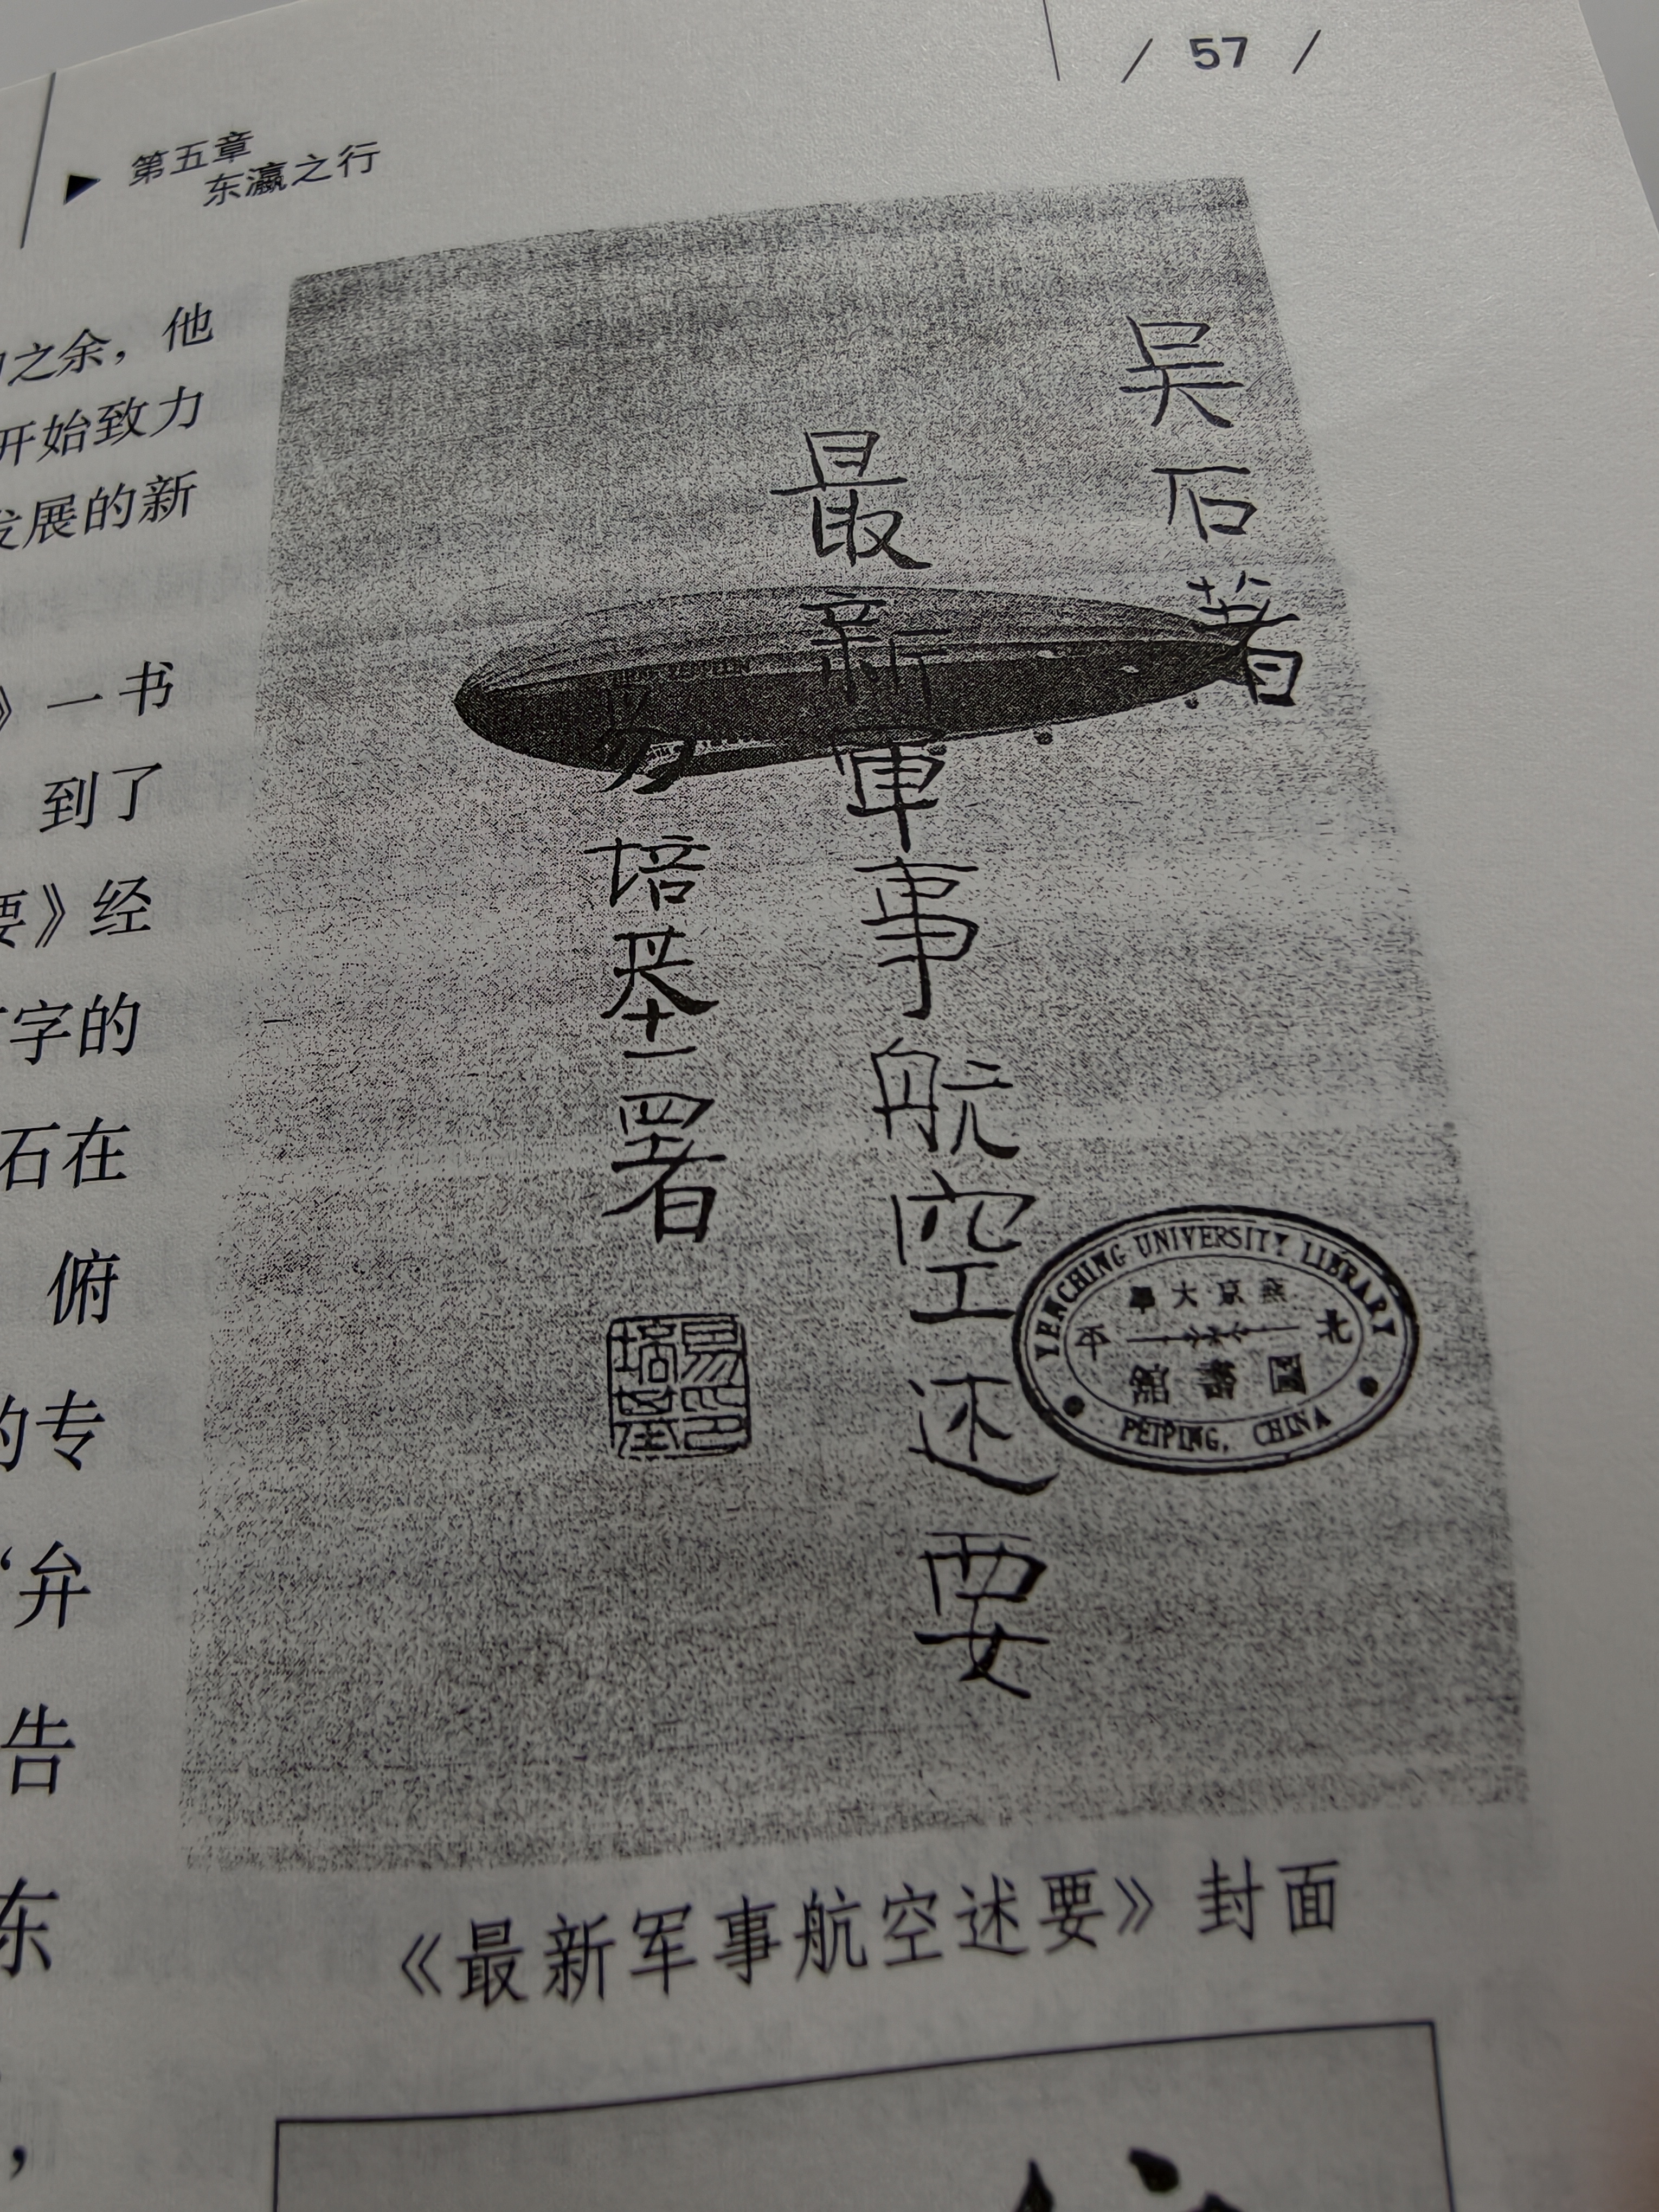 / 57 /
第五章
东瀛之行
之余，他
开始致力
发展的新
》一书
到了
要》经
字的
石在
俯
的专
“弁
告
东
，
吴石著
最新軍事航空述要
易培基署
易印培基
YENCHING UNIVERSITY LIBRARY
燕京大學
北平
圖書館
PEIPING, CHINA
《最新军事航空述要》封面